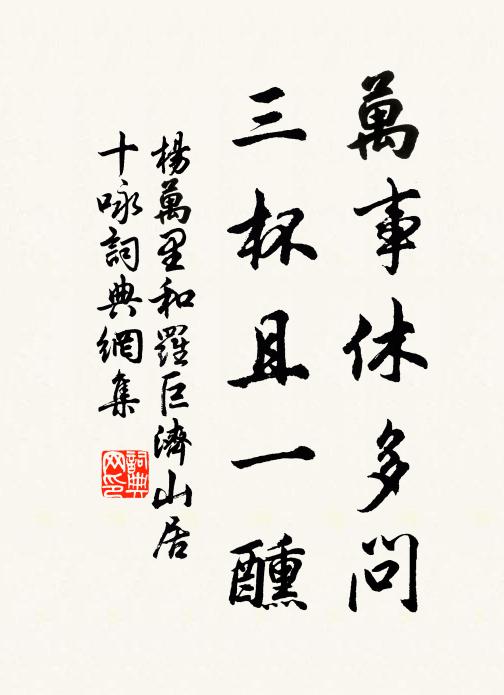 萬事休多問
三杯且一醺
楊萬里和羅巨濟山居
十咏詞典網集
詞典网印